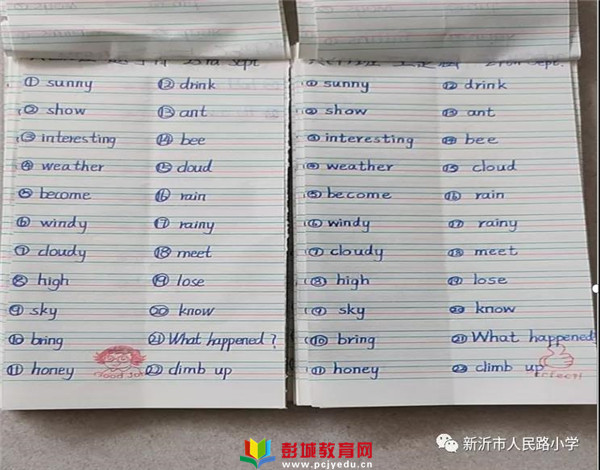 ① sunny ⑫ drink
② show ⑬ ant
③ interesting ⑭ bee
④ weather ⑮ cloud
⑤ become ⑯ rain
⑥ windy ⑰ rainy
⑦ cloudy ⑱ meet
⑧ high ⑲ lose
⑨ sky ⑳ know
⑩ bring ㉑ What happened?
⑪ honey ㉒ climb up
Good Job
① sunny ⑫ drink
② show ⑬ ant
③ interesting ⑭ bee
④ weather ⑮ cloud
⑤ become ⑯ rain
⑥ windy ⑰ rainy
⑦ cloudy ⑱ meet
⑧ high ⑲ lose
⑨ sky ⑳ know
⑩ bring ㉑ What happened
⑪ honey ㉒ climb up
彭城教育网
www.pcjyedu.cn
新沂市人民路小学